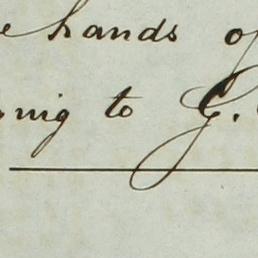 e hands of
nig to G.